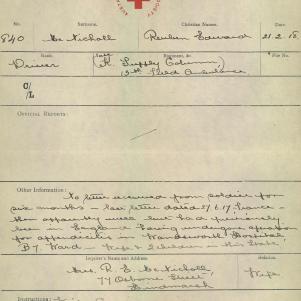 No. Surname. Christian Names.
840 McNicholl Reuben Edward 21.2.18
Rank. Regiment, &c. File No.
Driver (late) (4 Supply Column)
13th Field Ambulance
C/L
OFFICIAL REPORTS:
Other Information:
No letter received from soldier for
six months - last letter dated 27.6.17, France -
then apparently well but had previously
been in England having undergone operation
for appendicitis in Wandsworth Hospital,
B7 Ward - Wife & children in this State,
Inquirer's Name and Address. Relation.
Mrs. R. E. McNicholl Wife
77 Osborne Street,
Hindmarsh
Instructions: